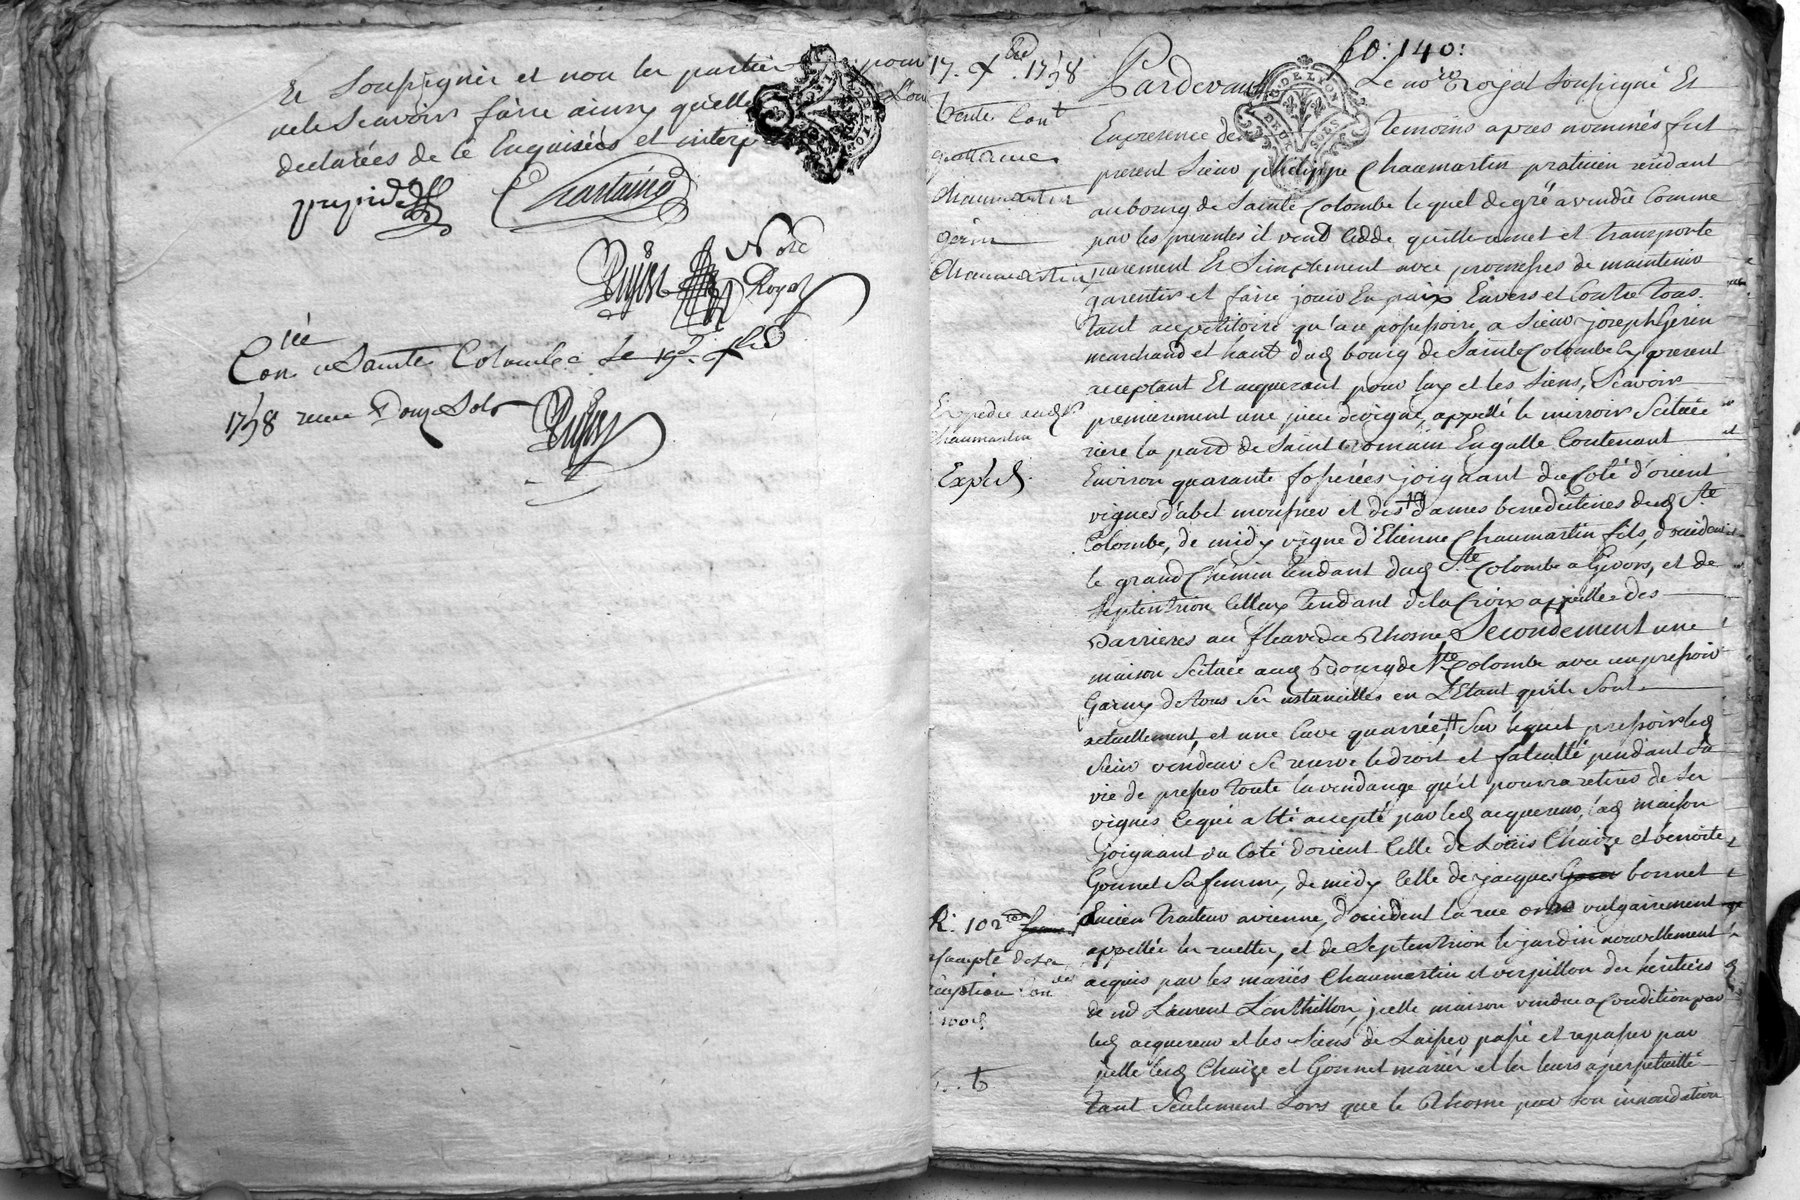 Et Soussigner et non les parties pour
ne le Scavoir faire ainsy qu'elle
declarées de ce Enquisées et interp
Chartaing
Nore
Royal
Con lée a Sainte Colombe le 19e xbre
1758 receu Douze Sols
fo: 140:
17. xbre 1758
Vente Cont
guillaume
chaumartin
Gerin
Chaumartin
Pardevant Le nore Royal Soussigné Et
En presence des temoins apres nommés fut
present Sieur philippe Chaumartin praticien residant
au bourg de Sainte Colombe lequel de gré a vendû Comme
par les presentes il vend Cedde quitte remet et transporte
purement Et Simplement avec promesses de maintenir
garentir et faire jouir En paix Envers et Contre tous
tant au petitoire qu'au possessoire, a Sieur joseph Gerin
marchand et hant dud bourg de Sainte Colombe Cy present
acceptant Et acquerant pour luy et les Siens, Scavoir
Expedié aud Sr
chaumartin
premierement une piece de vigne appellé le mirroir Scituée
riere la parr de Saint Romain En galle Contenant
Exped.
Environ quarante fosserées joignant du Coté d'orient
vignes d'abel mousnier et des dames benedictines dud Ste
Colombe, de midy vigne d'Etienne Chaumartin fils, d'occident
le grand Chemin tendant dud Ste Colombe a Givors, et de
Septentrion Celluy tendant de la Croix appellée des
Darrieres au fleuve du Rhosne Secondement une
maison Scituée aud Bourg de Ste Colombe avec un pressoir
Garny de tous Ses ustancilles en L'Etant qu'ils Sont
actuellement, et une Cave quarrée, Sur lequel pressoir led
Sieur vendeur Se reserve le droit et faculté pendant Sa
vie de presser toute la vendange qu'il pourra retirer de Ses
vignes Ce qui a été accepté par led acquereur, lad maison
joignant du Coté d'orient Celle de Loüis Chaize et benoite
Gonnet Sa femme, de midy Celle de jacques bonnet
R. 102
Ancien traiteur a vienne, d'occident la rue vulgairement
appellée la ruette, et de Septentrion le jardin nouvellement
acquis par les mariés Chaumartin et verpillon des heritiers
de md Laurent Lenthillon, icelle maison vendue a Condition par
led acquereur et les Siens de Laisser passé et repasser par
icelle lesd Chaize et Gonnet mariés et les leurs a perpetuitté
tant Seulement Lors que le Rhosne par Son innondation